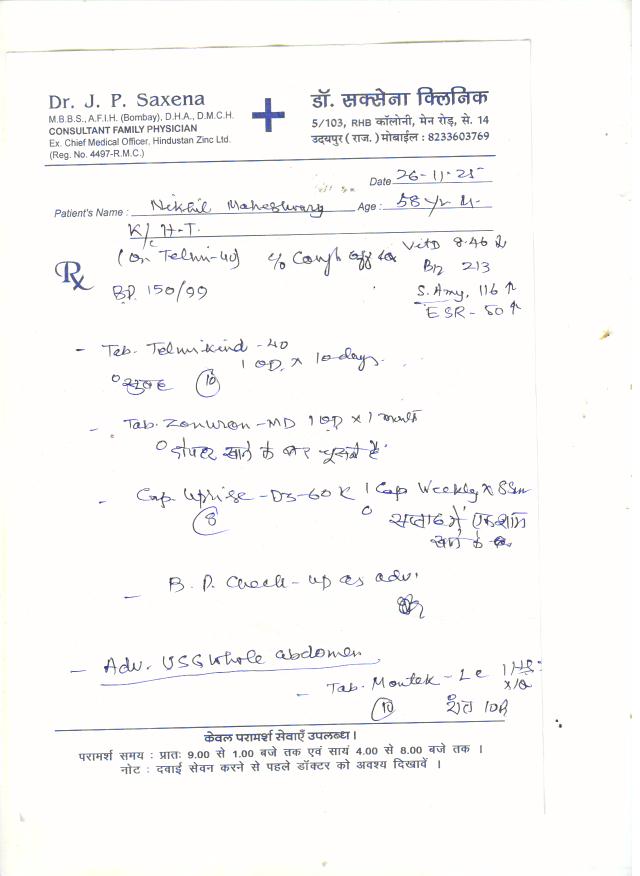 Dr. J. P. Saxena
M.B.B.S., A.F.I.H. (Bombay), D.H.A., D.M.C.H.
CONSULTANT FAMILY PHYSICIAN
Ex. Chief Medical Officer, Hindustan Zinc Ltd.
(Reg. No. 4497-R.M.C.)
डॉ. सक्सेना क्लिनिक
5/103, RHB कॉलोनी, मेन रोड़, से. 14
उदयपुर ( राज. ) मोबाईल : 8233603769
Date 26-11-25
Patient's Name : Nikhil Maheshwary Age : 58 yr M.
K/c H.T.
(on Telmi-40) c/o Cough off &on
BP. 150/99
Vit D 8.46 ↓
B12 213
S. Amy. 116 ↑
ESR - 50 ↑
Rx
- Tab. Telmikind - 40
1 OD. x 10 days.
सुबह (10)
- Tab. Zonuron-MD 1 OD x 1 month
दोपहर खाने के बाद चूसनी है
- Cap. Uprise-D3-60K 1 Cap Weekly x 8
(8)
सप्ताह में एक शाम
खाने के
- B.P. Check-up as adv.
- Adv. USG Whole abdomen
- Tab. Montek-Lc 1 HS
x 10
(10) रात
केवल परामर्श सेवाएँ उपलब्ध।
परामर्श समय : प्रातः 9.00 से 1.00 बजे तक एवं सायं 4.00 से 8.00 बजे तक ।
नोट : दवाई सेवन करने से पहले डॉक्टर को अवश्य दिखावें ।